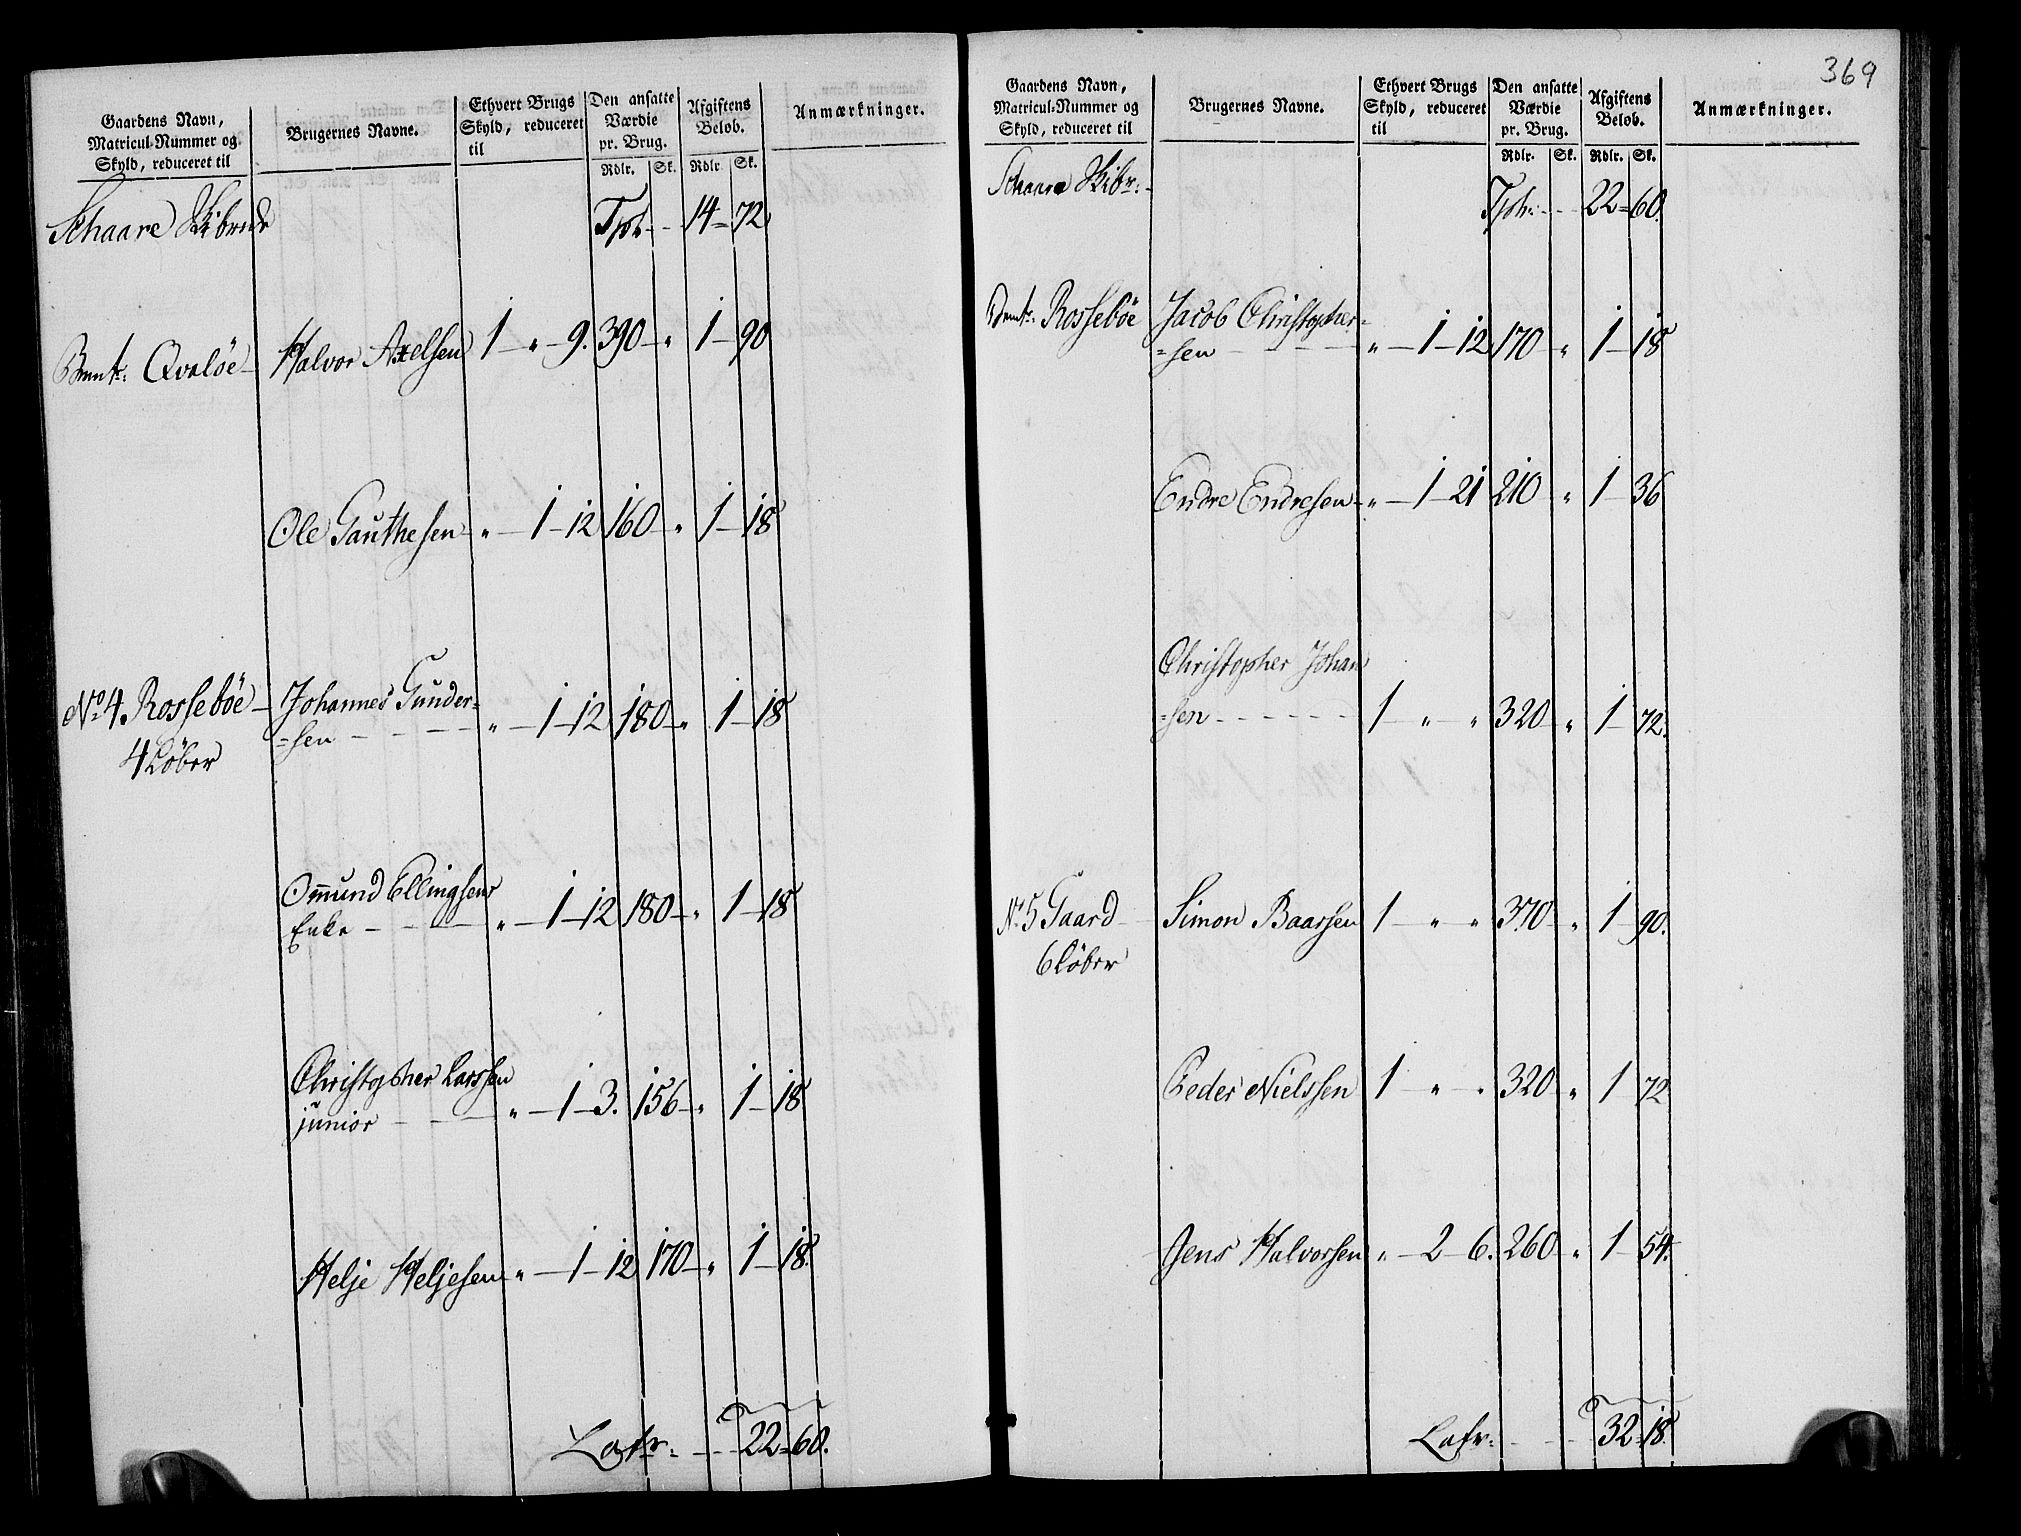 Gaardens Navn,
Matricul-Nummer og
Skyld, reduceret til
Brugernes Navne.
Ethvert Brugs
Skyld, reduceret
til
Den ansatte
Værdie
pr. Brug.
Rdlr. Sk.
Afgiftens
Beløb.
Rdlr. Sk.
Anmærkninger.
Schaare Skibrede
Tpt: 14 = 72
Qvaløe Halvor Axelsen 1 — " — 9. 390 — " 1 — 90
Ole Gauthesen — " — 1 — 12 160 — " 1 — 18
No 4. Rossebøe — Johannes Gunder=
=sen — " — 1 — 12 180 — " 1 — 18
4 Løber
Omund Ellingsens
Enke — " — 1 — 12 180 — " 1 — 18
Christopher Larssen
junior — " — 1 — 3. 156 — " 1 — 18
Helje Heljesen — " — 1 — 12 170 — " 1 — 18.
Latr: 22 = 60.
369
Gaardens Navn,
Matricul-Nummer og
Skyld, reduceret til
Brugernes Navne.
Ethvert Brugs
Skyld, reduceret
til
Den ansatte
Værdie
pr. Brug.
Rdlr. Sk.
Afgiftens
Beløb.
Rdlr. Sk.
Anmærkninger.
Schaare Skibr:
Tpt: 22 = 60.
Rossebøe Jacob Christopher=
=sen " — 1 — 12 170 " 1 — 18
Endre Endresen — " — 1 — 21 210 " 1 — 36
Christopher Johan
=sen 1 — " — " 320 — " 1 — 72.
No 5 Gaard — Simon Baarsen 1 — " — " 370 — " 1 — 90.
6 Løber
Peder Nielssen 1 — " — " 320 — " 1 72
Jens Halvorsen " — 2 — 6. 260 — " 1 — 54.
Latr: 32 = 18.